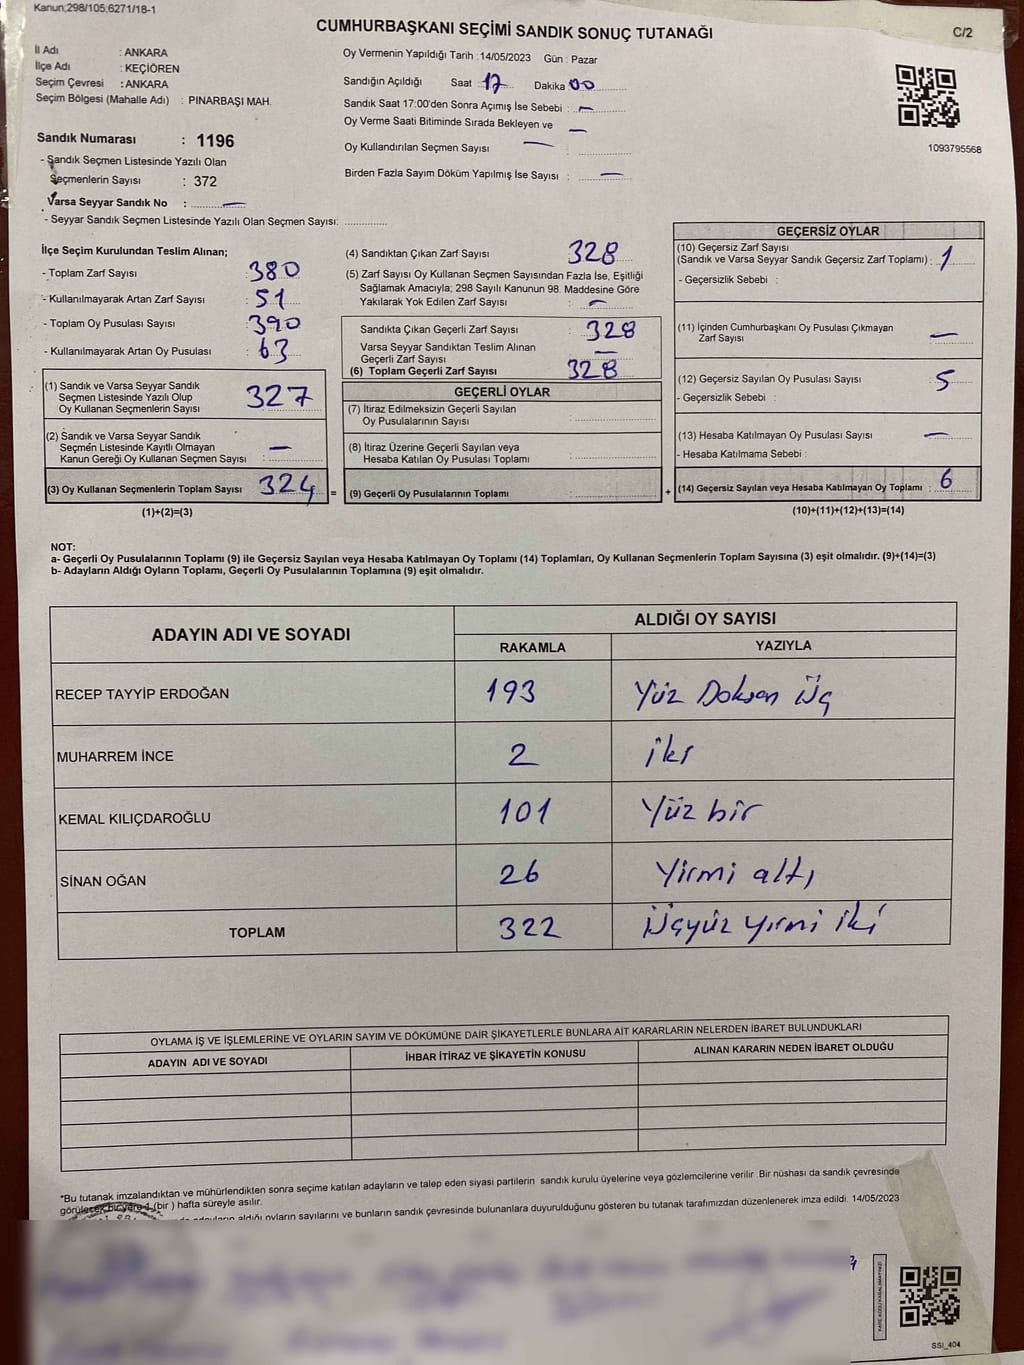 Kanun;298/105;6271/18-1
CUMHURBAŞKANI SEÇİMİ SANDIK SONUÇ TUTANAĞI
C/2
İl Adı : ANKARA
İlçe Adı : KEÇİÖREN
Seçim Çevresi : ANKARA
Seçim Bölgesi (Mahalle Adı) : PINARBAŞI MAH.
Sandık Numarası : 1196
- Sandık Seçmen Listesinde Yazılı Olan
Seçmenlerin Sayısı : 372
Varsa Seyyar Sandık No : —
- Seyyar Sandık Seçmen Listesinde Yazılı Olan Seçmen Sayısı:
Oy Vermenin Yapıldığı Tarih : 14/05/2023 Gün : Pazar
Sandığın Açıldığı Saat 17 Dakika 00
Sandık Saat 17:00'den Sonra Açımış İse Sebebi : —
Oy Verme Saati Bitiminde Sırada Bekleyen ve —
Oy Kullandırılan Seçmen Sayısı — :
Birden Fazla Sayım Döküm Yapılmış İse Sayısı : —
1093795568
İlçe Seçim Kurulundan Teslim Alınan;
- Toplam Zarf Sayısı : 380
- Kullanılmayarak Artan Zarf Sayısı : 51
- Toplam Oy Pusulası Sayısı : 390
- Kullanılmayarak Artan Oy Pusulası : 63
(1) Sandık ve Varsa Seyyar Sandık
Seçmen Listesinde Yazılı Olup
Oy Kullanan Seçmenlerin Sayısı : 327
(2) Sandık ve Varsa Seyyar Sandık
Seçmen Listesinde Kayıtlı Olmayan
Kanun Gereği Oy Kullanan Seçmen Sayısı : —
(3) Oy Kullanan Seçmenlerin Toplam Sayısı : 324
(1)+(2)=(3)
(4) Sandıktan Çıkan Zarf Sayısı : 328
(5) Zarf Sayısı Oy Kullanan Seçmen Sayısından Fazla İse, Eşitliği
Sağlamak Amacıyla; 298 Sayılı Kanunun 98. Maddesine Göre
Yakılarak Yok Edilen Zarf Sayısı : —
Sandıkta Çıkan Geçerli Zarf Sayısı : 328
Varsa Seyyar Sandıktan Teslim Alınan
Geçerli Zarf Sayısı : —
(6) Toplam Geçerli Zarf Sayısı : 328
GEÇERLİ OYLAR
(7) İtiraz Edilmeksizin Geçerli Sayılan
Oy Pusulalarının Sayısı :
(8) İtiraz Üzerine Geçerli Sayılan veya
Hesaba Katılan Oy Pusulası Toplamı :
= (9) Geçerli Oy Pusulalarının Toplamı :
GEÇERSİZ OYLAR
(10) Geçersiz Zarf Sayısı
(Sandık ve Varsa Seyyar Sandık Geçersiz Zarf Toplamı) : 1
- Geçersizlik Sebebi :
(11) İçinden Cumhurbaşkanı Oy Pusulası Çıkmayan
Zarf Sayısı : —
(12) Geçersiz Sayılan Oy Pusulası Sayısı : 5
- Geçersizlik Sebebi :
(13) Hesaba Katılmayan Oy Pusulası Sayısı : —
- Hesaba Katılmama Sebebi :
+ (14) Geçersiz Sayılan veya Hesaba Katılmayan Oy Toplamı : 6
(10)+(11)+(12)+(13)=(14)
NOT:
a- Geçerli Oy Pusulalarının Toplamı (9) ile Geçersiz Sayılan veya Hesaba Katılmayan Oy Toplamı (14) Toplamları, Oy Kullanan Seçmenlerin Toplam Sayısına (3) eşit olmalıdır. (9)+(14)=(3)
b- Adayların Aldığı Oyların Toplamı, Geçerli Oy Pusulalarının Toplamına (9) eşit olmalıdır.
ADAYIN ADI VE SOYADI
ALDIĞI OY SAYISI
RAKAMLA YAZIYLA
RECEP TAYYİP ERDOĞAN 193 Yüz Doksan Üç
MUHARREM İNCE 2 iki
KEMAL KILIÇDAROĞLU 101 Yüz bir
SİNAN OĞAN 26 Yirmi altı
TOPLAM 322 Üçyüz yirmi iki
OYLAMA İŞ VE İŞLEMLERİNE VE OYLARIN SAYIM VE DÖKÜMÜNE DAİR ŞİKAYETLERLE BUNLARA AİT KARARLARIN NELERDEN İBARET BULUNDUKLARI
ADAYIN ADI VE SOYADI İHBAR İTİRAZ VE ŞİKAYETİN KONUSU ALINAN KARARIN NEDEN İBARET OLDUĞU
*Bu tutanak imzalandıktan ve mühürlendikten sonra seçime katılan adayların ve talep eden siyasi partilerin sandık kurulu üyelerine veya gözlemcilerine verilir. Bir nüshası da sandık çevresinde
görülecek bir yere 1 (bir) hafta süreyle asılır.
adayların aldığı oyların sayılarını ve bunların sandık çevresinde bulunanlara duyurulduğunu gösteren bu tutanak tarafımızdan düzenlenerek imza edildi. 14/05/2023
SSI_404